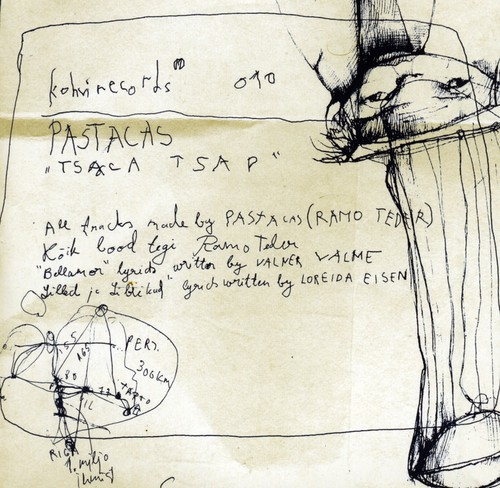 kohvirecords 010
PASTACAS
"TSACA TSAP"
All tracks made by PASTACAS (RAMO TEDER)
Kõik lood tegi Ramo Teder
"Bellamor" lyrics written by VALNER VALME
"Lilled ja Liblikad" lyrics written by LOREIDA EISEN
306KM
RIGA